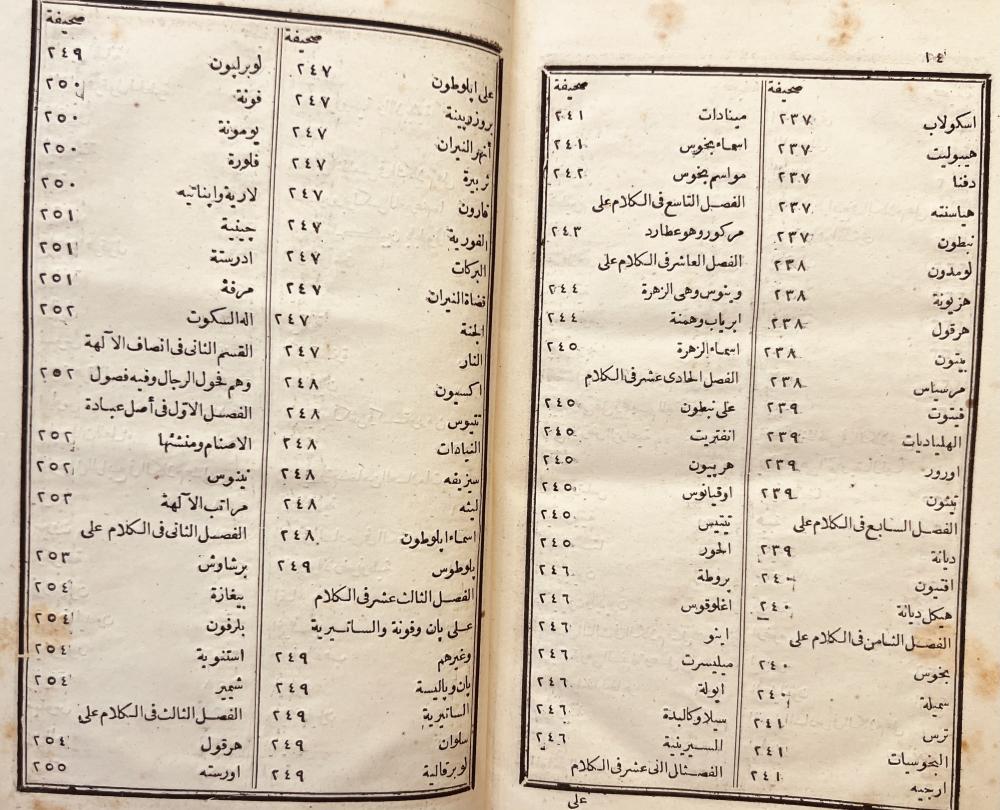 ١٤
صحيفة
اسكولاب ٢٣٧
هيبوليت ٢٣٧
دفنا ٢٣٧
هياسنته ٢٣٧
نبطون ٢٣٧
لومدون ٢٣٨
هزيونة ٢٣٨
هرقول ٢٣٨
بيتون ٢٣٨
مرسياس ٢٣٨
فيتوت ٢٣٩
الهلياديات ٢٣٩
اورور ٢٣٩
تيتون ٢٣٩
الفصل السابع فى الكلام على
ديانة ٢٣٩
اقتيون ٢٤٠
هيكل ديانة ٢٤٠
الفصل الثامن فى الكلام على
بخوس ٢٤٠
سميلة ٢٤٠
ترس ٢٤١
البخوسيات ٢٤١
ارجيه ٢٤١
صحيفة
مينادات ٢٤١
اسماء بخوس ٢٤١
مواسم بخوس ٢٤٢
الفصل التاسع فى الكلام على
مركور وهو عطارد ٢٤٣
الفصل العاشر فى الكلام على
وينوس وهى الزهرة ٢٤٤
ابرياب وهمنة ٢٤٤
اسماء الزهرة ٢٤٥
الفصل الحادى عشر فى الكلام
على نبطون ٢٤٥
انفتريت ٢٤٥
هربيون ٢٤٥
اوقيانوس ٢٤٥
تيتيس ٢٤٥
الحور ٢٤٥
بروطة ٢٤٦
اغلوقوس ٢٤٦
اينو ٢٤٦
ميليسرت ٢٤٦
ايولة ٢٤٦
سيلا وكاليدة ٢٤٦
السيرينية ٢٤٦
الفصل الثانى عشر فى الكلام
على
صحيفة
على ابلوطون ٢٤٧
بروزربينة ٢٤٧
أنهر النيران ٢٤٧
تربيرة ٢٤٧
قارون ٢٤٧
الفورية ٢٤٧
البركات ٢٤٧
قضاة النيران ٢٤٧
الجنة ٢٤٧
النار ٢٤٧
اكسيون ٢٤٨
تتيوس ٢٤٨
النيادات ٢٤٨
سيزيفه ٢٤٨
ليثه ٢٤٨
اسماء ابلوطون ٢٤٨
پلوطوس ٢٤٩
الفصل الثالث عشر فى الكلام
على پان وفونة والساتيرية
وغيرهم ٢٤٩
پان وپاليسة ٢٤٩
الساتيرية ٢٤٩
سلوان ٢٤٩
لوبرقالية ٢٤٩
صحيفة
لوبرليون ٢٤٩
فونة ٢٥٠
بومونة ٢٥٠
فلورة ٢٥٠
لارية وابنائيه ٢٥٠
جينية ٢٥١
ادرستة ٢٥١
مرفة ٢٥١
اله السكوت ٢٥٢
القسم الثانى فى انصاف الآلهة
وهم فحول الرجال وفيه فصول ٢٥٢
الفصل الاول فى أصل عبادة
الاصنام ومنشئها ٢٥٢
نينوس ٢٥٢
مراتب الآلهة ٢٥٣
الفصل الثانى فى الكلام على
برشاوش ٢٥٣
بيغازة ٢٥٤
بلرفون ٢٥٤
استنوبة ٢٥٤
شمير ٢٥٤
الفصل الثالث فى الكلام على
هرقول ٢٥٤
اورسته ٢٥٥